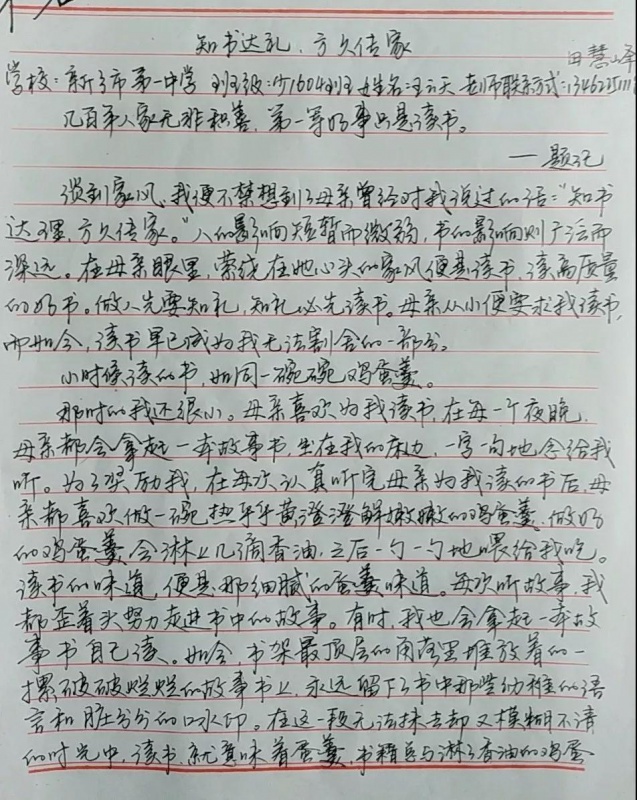 知书达礼，方久传家
田慧峰
学校：新乡市第一中学 班级：少1604班 姓名：王云天 老师联系方式：
几百年人家无非积善，第一等好事只是读书。
——题记
谈到家风，我便不禁想到了母亲曾经对我说过的话：“知书
达理，方久传家。”人的影响短暂而微弱，书的影响则广泛而
深远。在母亲眼里，萦绕在她心头的家风便是读书，读高质量
的好书。做人先要知礼，知礼必先读书。母亲从小便要求我读书，
而如今，读书早已成为我无法割舍的一部分。
小时候读的书，如同一碗碗鸡蛋羹。
那时的我还很小。母亲喜欢为我读书，在每一个夜晚，
母亲都会拿起一本故事书，坐在我的床边，一字一句地念给我
听。为了奖励我，在每次认真听完母亲为我读的书后，母
亲都喜欢做一碗热乎乎黄澄澄鲜嫩嫩的鸡蛋羹，做好
的鸡蛋羹会淋上几滴香油，之后一勺一勺地喂给我吃。
读书的味道，便是那细腻的蛋羹味道。每次听故事，我
都歪着头努力走进书中的故事。有时，我也会拿起一本故
事书自己读。如今，书架最顶层的角落里堆放着的一
摞破破烂烂的故事书上，永远留下了书中那些幼稚的语
言和脏兮兮的口水印。在这一段无法抹去却又模糊不清
的时光中，读书，就意味着蛋羹，书籍总与淋了香油的鸡蛋